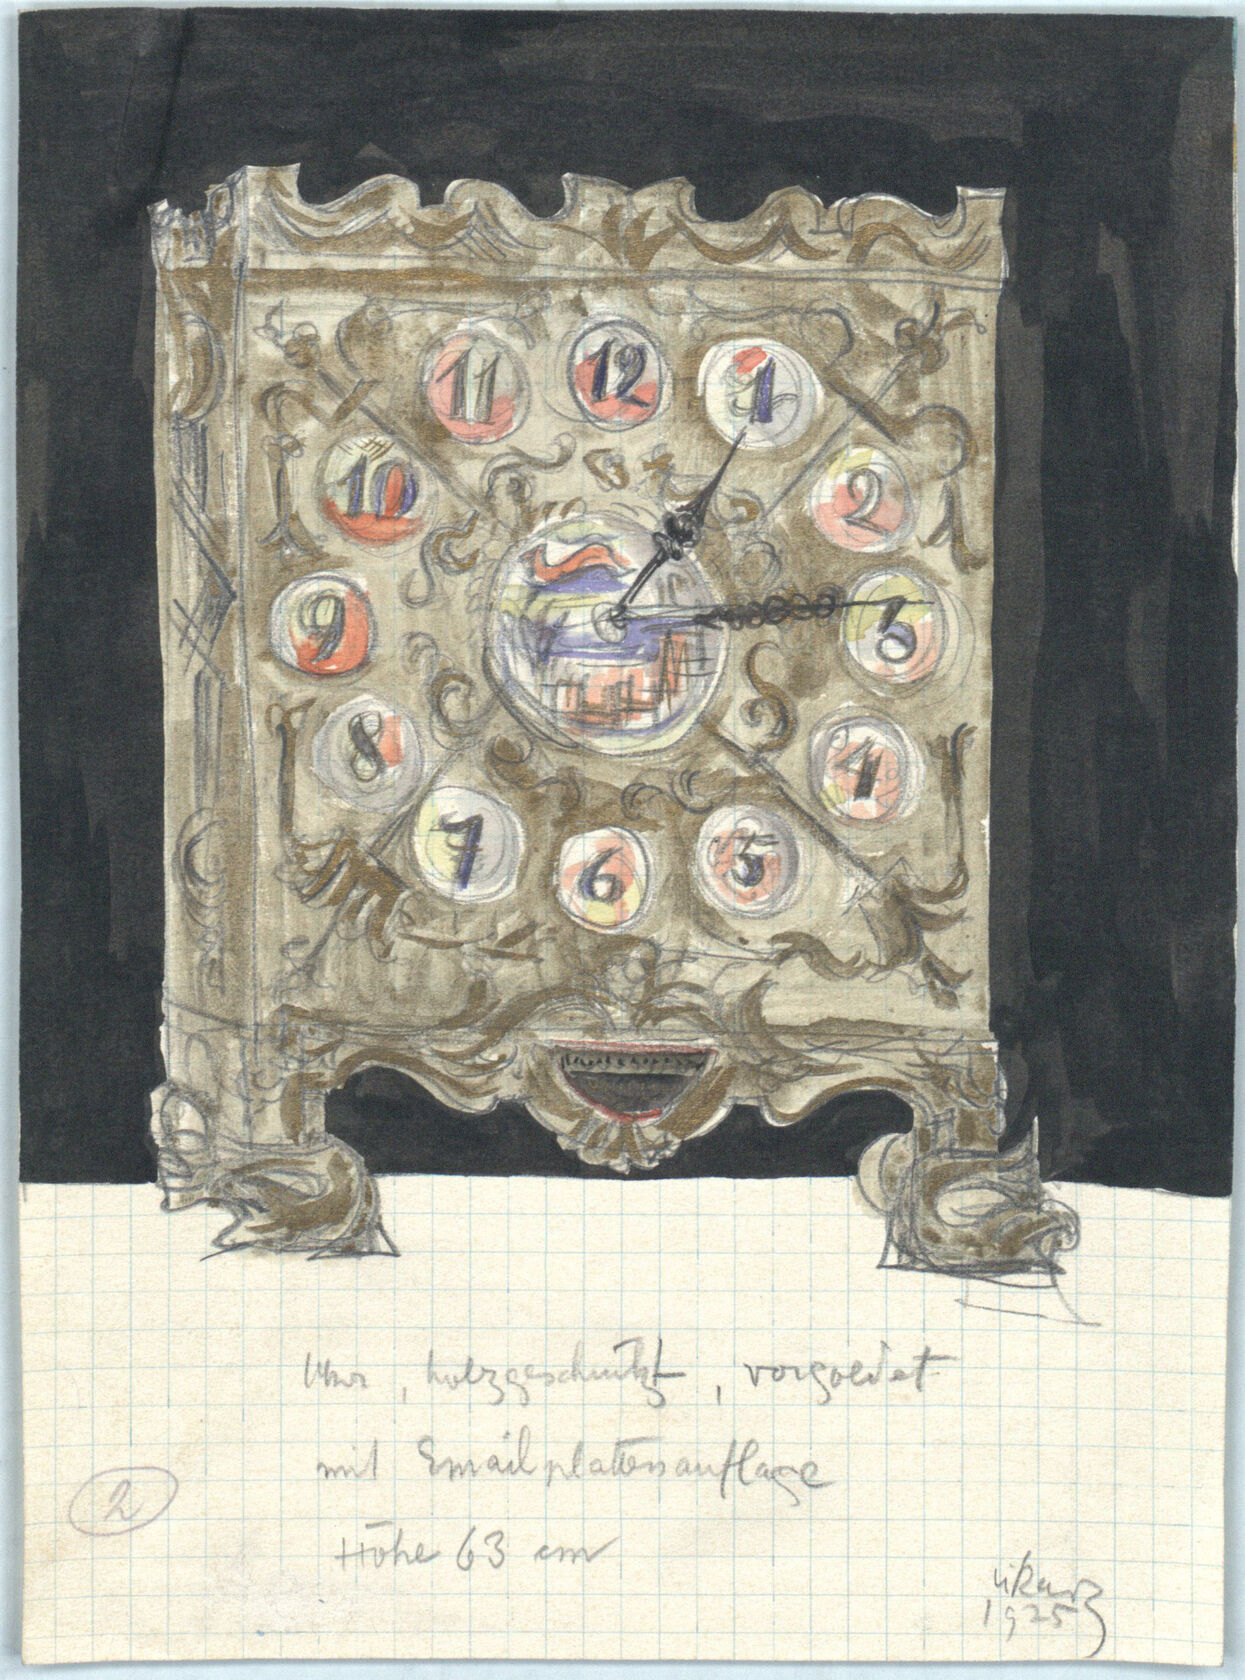 11 12 1
10 2
9 3
8 4
7 6 5
Uhr, holzgeschnitzt, vergoldet
mit Emailplattenauflage
2
Höhe 63 cm
1925